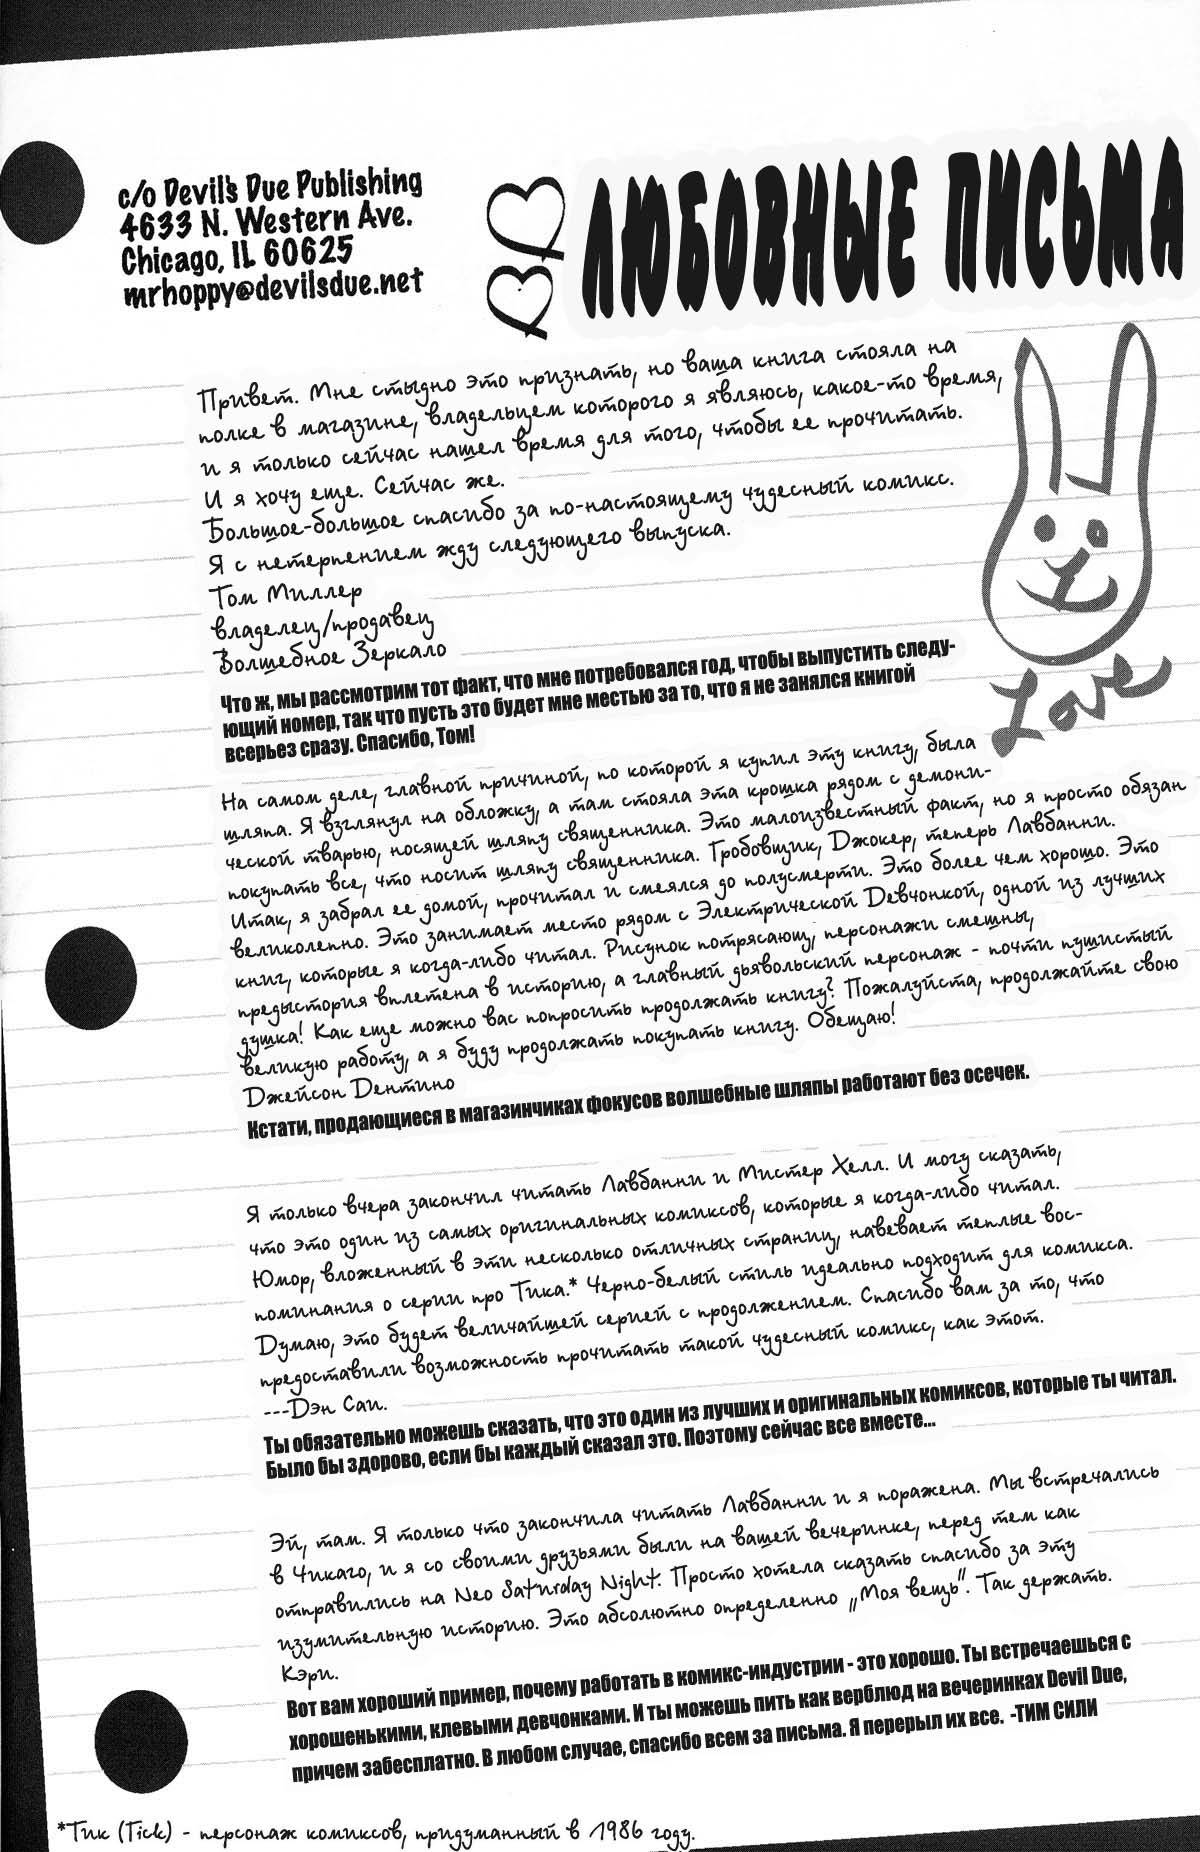 c/o Devil's Due Publishing
4633 N. Western Ave.
Chicago, IL 60625
mrhoppy@devilsdue.net
ЛЮБОВНЫЕ ПИСЬМА
Привет. Мне стыдно это признать, но ваша книга стояла на
полке в магазине, владельцем которого я являюсь, какое-то время,
и я только сейчас нашел время для того, чтобы ее прочитать.
И я хочу еще. Сейчас же.
Большое-большое спасибо за по-настоящему чудесный комикс.
Я с нетерпением жду следующего выпуска.
Том Миллер
владелец/продавец
Волшебное Зеркало
Love
Что ж, мы рассмотрим тот факт, что мне потребовался год, чтобы выпустить следу-
ющий номер, так что пусть это будет мне местью за то, что я не занялся книгой
всерьез сразу. Спасибо, Том!
На самом деле, главной причиной, по которой я купил эту книгу, была
шляпа. Я взглянул на обложку, а там стояла эта крошка рядом с демони-
ческой тварью, носящей шляпу священника. Это малоизвестный факт, но я просто обязан
покупать все, что носит шляпу священника. Гробовщик, Джокер, теперь Лавбанни.
Итак, я забрал ее домой, прочитал и смеялся до полусмерти. Это более чем хорошо. Это
великолепно. Это занимает место рядом с Электрической Девчонкой, одной из лучших
книг, которые я когда-либо читал. Рисунок потрясающ, персонажи смешны,
предыстория вплетена в историю, а главный дьявольский персонаж - почти пушистый
душка! Как еще можно вас попросить продолжать книгу? Пожалуйста, продолжайте свою
великую работу, а я буду продолжать покупать книгу. Обещаю!
Джейсон Дентино
Кстати, продающиеся в магазинчиках фокусов волшебные шляпы работают без осечек.
Я только вчера закончил читать Лавбанни и Мистер Хелл. И могу сказать,
что это один из самых оригинальных комиксов, которые я когда-либо читал.
Юмор, вложенный в эти несколько отличных страниц, навевает теплые вос-
поминания о серии про Тика.* Черно-белый стиль идеально подходит для комикса.
Думаю, это будет величайшей серией с продолжением. Спасибо вам за то, что
предоставили возможность прочитать такой чудесный комикс, как этот.
---Дэн Саи.
Ты обязательно можешь сказать, что это один из лучших и оригинальных комиксов, которые ты читал.
Было бы здорово, если бы каждый сказал это. Поэтому сейчас все вместе...
Эй, там. Я только что закончила читать Лавбанни и я поражена. Мы встречались
в Чикаго, и я со своими друзьями были на вашей вечеринке, перед тем как
отправились на Neo Saturday Night. Просто хотела сказать спасибо за эту
изумительную историю. Это абсолютно определенно „Моя вещь". Так держать.
Кэри.
Вот вам хороший пример, почему работать в комикс-индустрии - это хорошо. Ты встречаешься с
хорошенькими, клевыми девчонками. И ты можешь пить как верблюд на вечеринках Devil Due,
причем забесплатно. В любом случае, спасибо всем за письма. Я перерыл их все. -ТИМ СИЛИ
*Тик (Tick) - персонаж комиксов, придуманный в 1986 году.